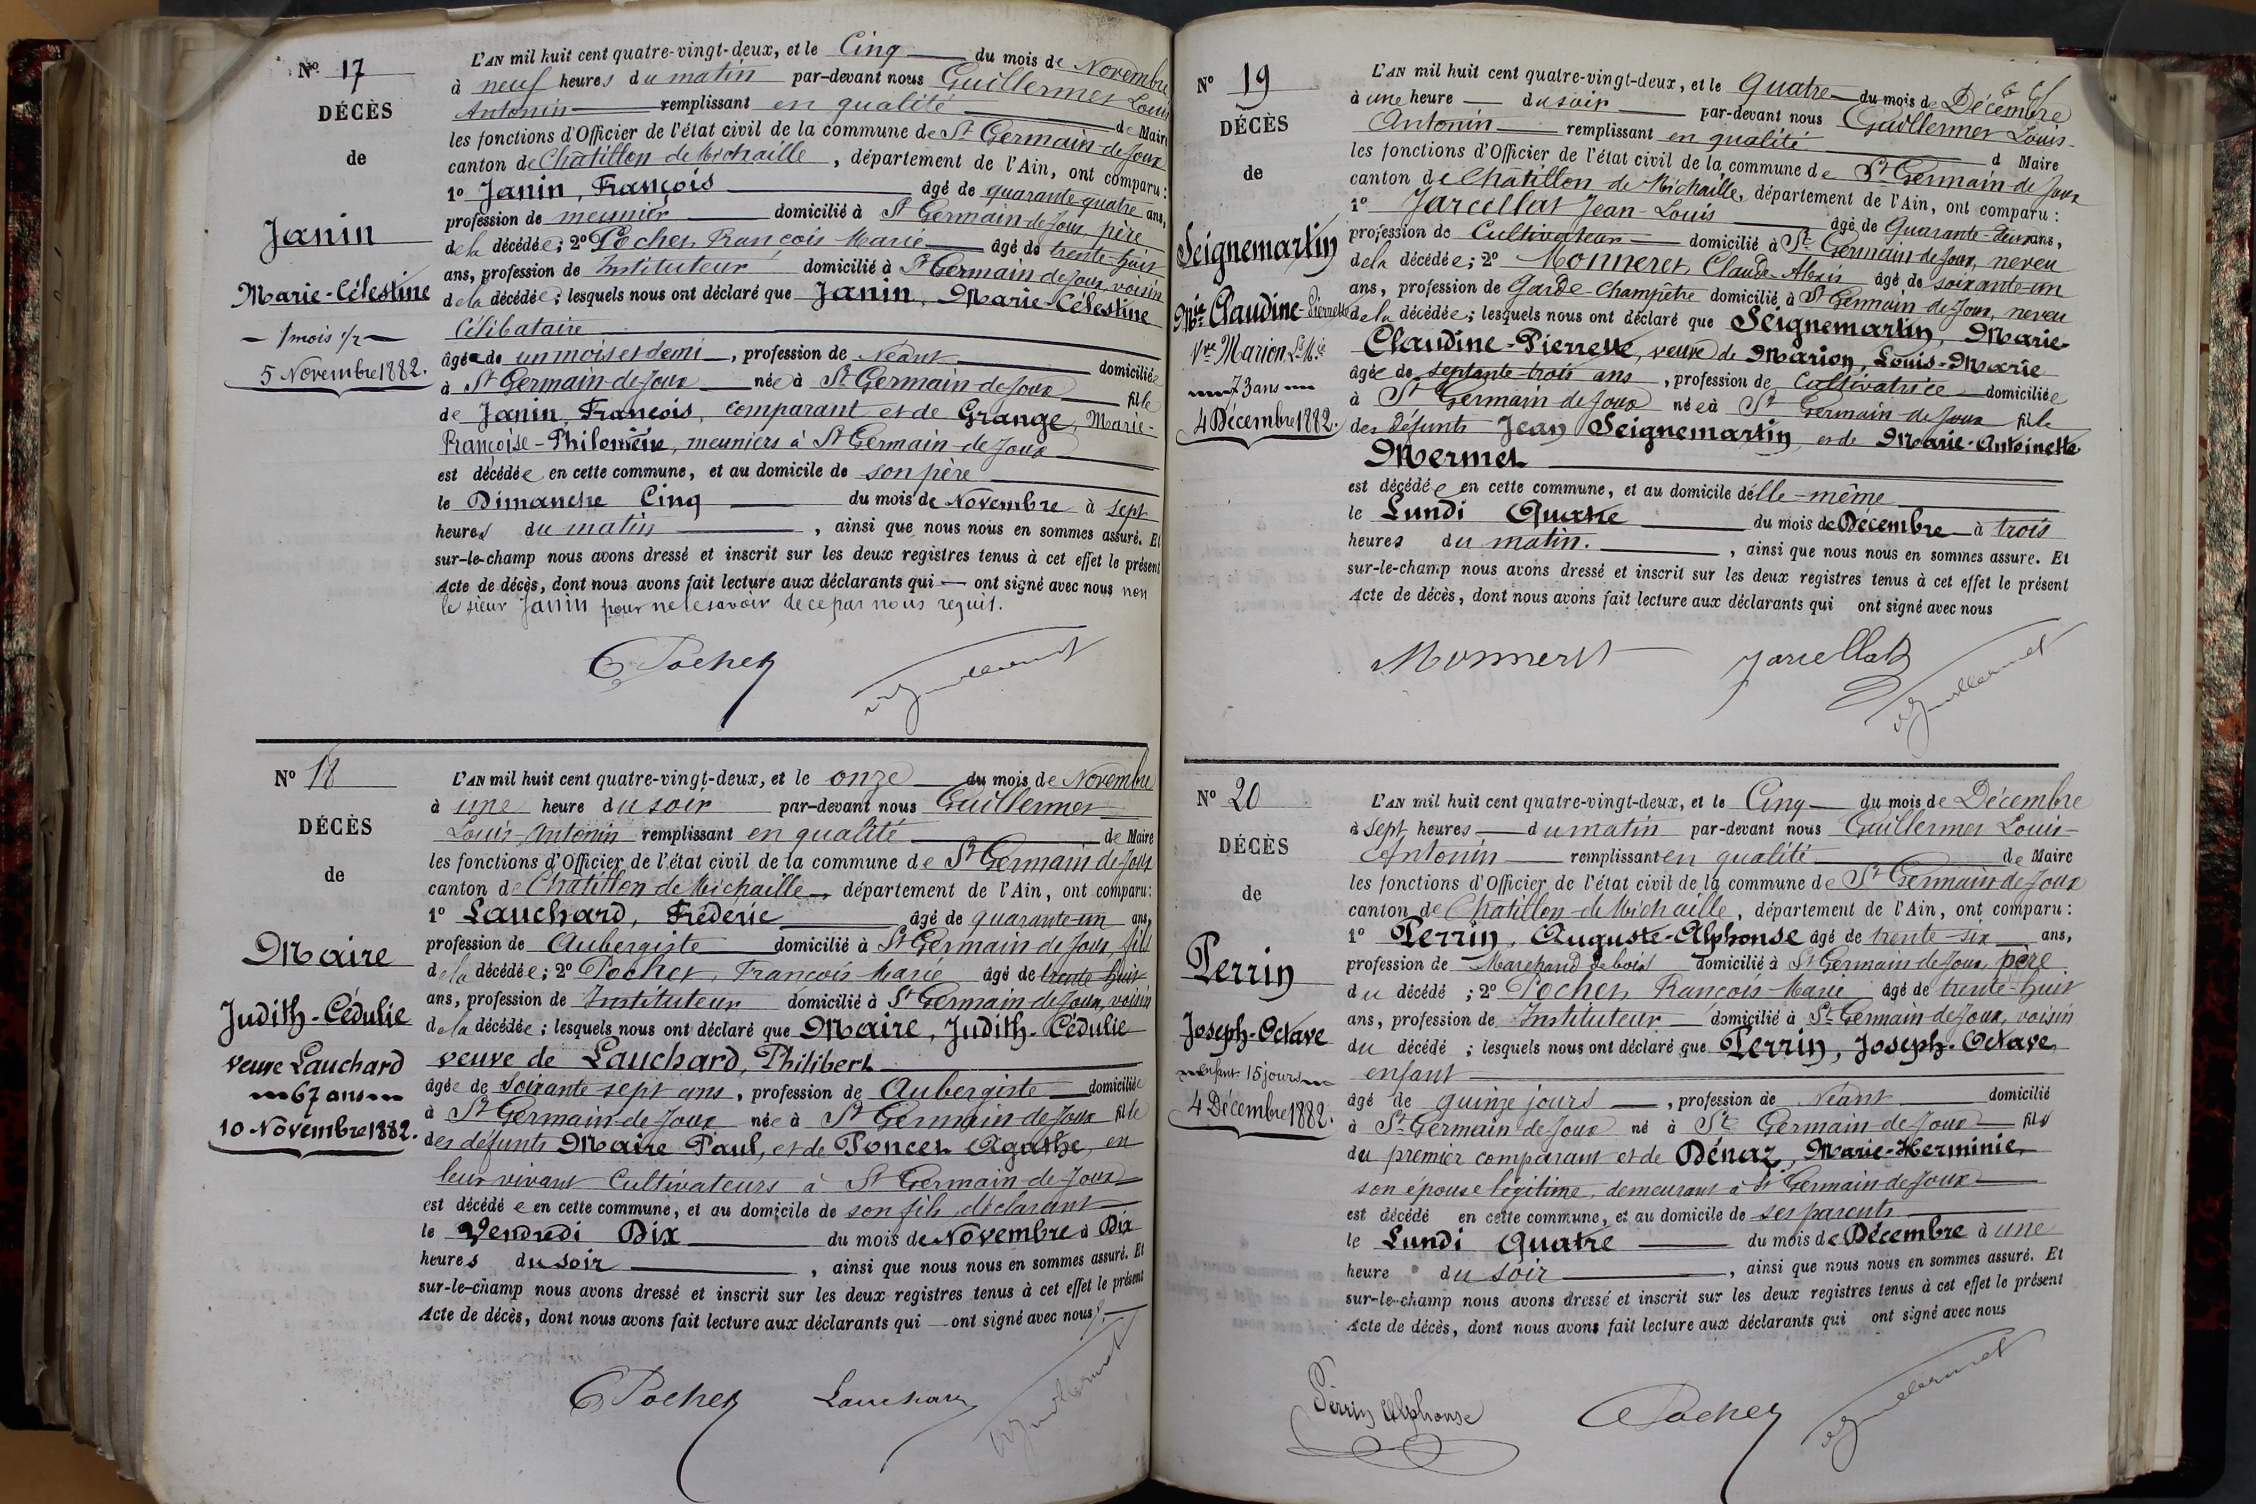 N° 17
DÉCÈS
de
Janin
Marie-Célestine
1 mois 1/2
5 Novembre 1882.
L'AN mil huit cent quatre-vingt-deux, et le Cinq du mois de Novembre
à neuf heures du matin par-devant nous Guillermet Louis
Antonin remplissant en qualité de Maire
les fonctions d'Officier de l'état civil de la commune de St Germain-de-Joux
canton de Châtillon de Michaille, département de l'Ain, ont comparu:
1° Janin, François âgé de quarante-quatre ans,
profession de meunier domicilié à St Germain-de-Joux père
de la décédée; 2° Pochet, François Marie âgé de trente-huit
ans, profession de Instituteur domicilié à St Germain de Joux, voisin
de la décédée; lesquels nous ont déclaré que Janin, Marie-Célestine
Célibataire
âgée de un mois et demi, profession de Néant domiciliée
à St Germain-de-Joux née à St Germain-de-Joux fille
de Janin, François, comparant et de Grange, Marie-
Françoise-Philomène, meuniers à St Germain-de-Joux
est décédée en cette commune, et au domicile de son père
le Dimanche Cinq du mois de Novembre à sept
heures du matin, ainsi que nous nous en sommes assuré. Et
sur-le-champ nous avons dressé et inscrit sur les deux registres tenus à cet effet le présent
Acte de décès, dont nous avons fait lecture aux déclarants qui — ont signé avec nous non
le sieur Janin pour ne le savoir de ce par nous requis.
Pochet Guillermet
N° 18
DÉCÈS
de
Maire
Judith-Cédulie
veuve Lauchard
67 ans
10 Novembre 1882.
L'AN mil huit cent quatre-vingt-deux, et le onze du mois de Novembre
à une heure du soir par-devant nous Guillermet
Louis-Antonin remplissant en qualité de Maire
les fonctions d'Officier de l'état civil de la commune de St Germain de Joux
canton de Châtillon de Michaille, département de l'Ain, ont comparu:
1° Lauchard, Frédéric âgé de quarante-un ans,
profession de Aubergiste domicilié à St Germain de Joux, fils
de la décédée; 2° Pochet, François Marie âgé de trente huit
ans, profession de Instituteur domicilié à St Germain de Joux, voisin
de la décédée; lesquels nous ont déclaré que Maire, Judith-Cédulie
veuve de Lauchard, Philibert
âgée de soixante sept ans, profession de Aubergiste domiciliée
à St Germain-de-Joux née à St Germain-de-Joux fille
des défunts Maire Paul, et de Poncet Agathe, en
leur vivant Cultivateurs à St Germain-de-Joux
est décédée en cette commune, et au domicile de son fils déclarant
le Vendredi Dix du mois de Novembre à Dix
heures du soir, ainsi que nous nous en sommes assuré. Et
sur-le-champ nous avons dressé et inscrit sur les deux registres tenus à cet effet le présent
Acte de décès, dont nous avons fait lecture aux déclarants qui — ont signé avec nous.
Pochet Lauchard Guillermet
N° 19
DÉCÈS
de
Seignemartin
Mie Claudine-Pierrette
Vve Marion, Ls Mie
73 ans
4 Décembre 1882.
L'AN mil huit cent quatre-vingt-deux, et le Quatre du mois de Décembre
à une heure du soir par-devant nous Guillermet Louis-
Antonin remplissant en qualité d Maire
les fonctions d'Officier de l'état civil de la commune de St Germain-de-Joux
canton de Châtillon de Michaille, département de l'Ain, ont comparu:
1° Jarcellat Jean-Louis âgé de Quarante-deux ans,
profession de Cultivateur domicilié à St Germain de Joux, neveu
de la décédée; 2° Monneret, Claude-Alexis âgé de soixante-un
ans, profession de Garde-Champêtre domicilié à St Germain de Joux, neveu
de la décédée; lesquels nous ont déclaré que Seignemartin, Marie-
Claudine-Pierrette, veuve de Marion, Louis-Marie
âgée de septante-trois ans, profession de Cultivatrice domiciliée
à St Germain de Joux née à St Germain-de-Joux fille
des défunts Jean Seignemartin, et de Marie-Antoinette
Mermet
est décédée en cette commune, et au domicile d'elle-même
le Lundi Quatre du mois de Décembre à trois
heures du matin., ainsi que nous nous en sommes assuré. Et
sur-le-champ nous avons dressé et inscrit sur les deux registres tenus à cet effet le présent
Acte de décès, dont nous avons fait lecture aux déclarants qui ont signé avec nous
Monneret Jarcellat Guillermet
N° 20
DÉCÈS
de
Perrin
Joseph-Octave
enfant 15 jours
4 Décembre 1882.
L'AN mil huit cent quatre-vingt-deux, et le Cinq du mois de Décembre
à sept heures du matin par-devant nous Guillermet Louis-
Antonin remplissant en qualité de Maire
les fonctions d'Officier de l'état civil de la commune de St Germain de Joux
canton de Châtillon-de-Michaille, département de l'Ain, ont comparu:
1° Perrin, Auguste-Alphonse âgé de trente-six ans,
profession de Marchand de bois domicilié à St Germain de Joux, père
du décédé; 2° Pochet, François-Marie âgé de trente-huit
ans, profession de Instituteur domicilié à St Germain de Joux, voisin
du décédé; lesquels nous ont déclaré que Perrin, Joseph-Octave
enfant
âgé de quinze jours, profession de Néant domicilié
à St Germain de Joux né à St Germain de Joux fils
du premier comparant et de Dénaz, Marie-Herminie,
son épouse légitime, demeurant à St Germain-de-Joux
est décédé en cette commune, et au domicile de ses parents
le Lundi Quatre du mois de Décembre à une
heure du soir, ainsi que nous nous en sommes assuré. Et
sur-le-champ nous avons dressé et inscrit sur les deux registres tenus à cet effet le présent
Acte de décès, dont nous avons fait lecture aux déclarants qui ont signé avec nous
Perrin Alphonse Pochet Guillermet